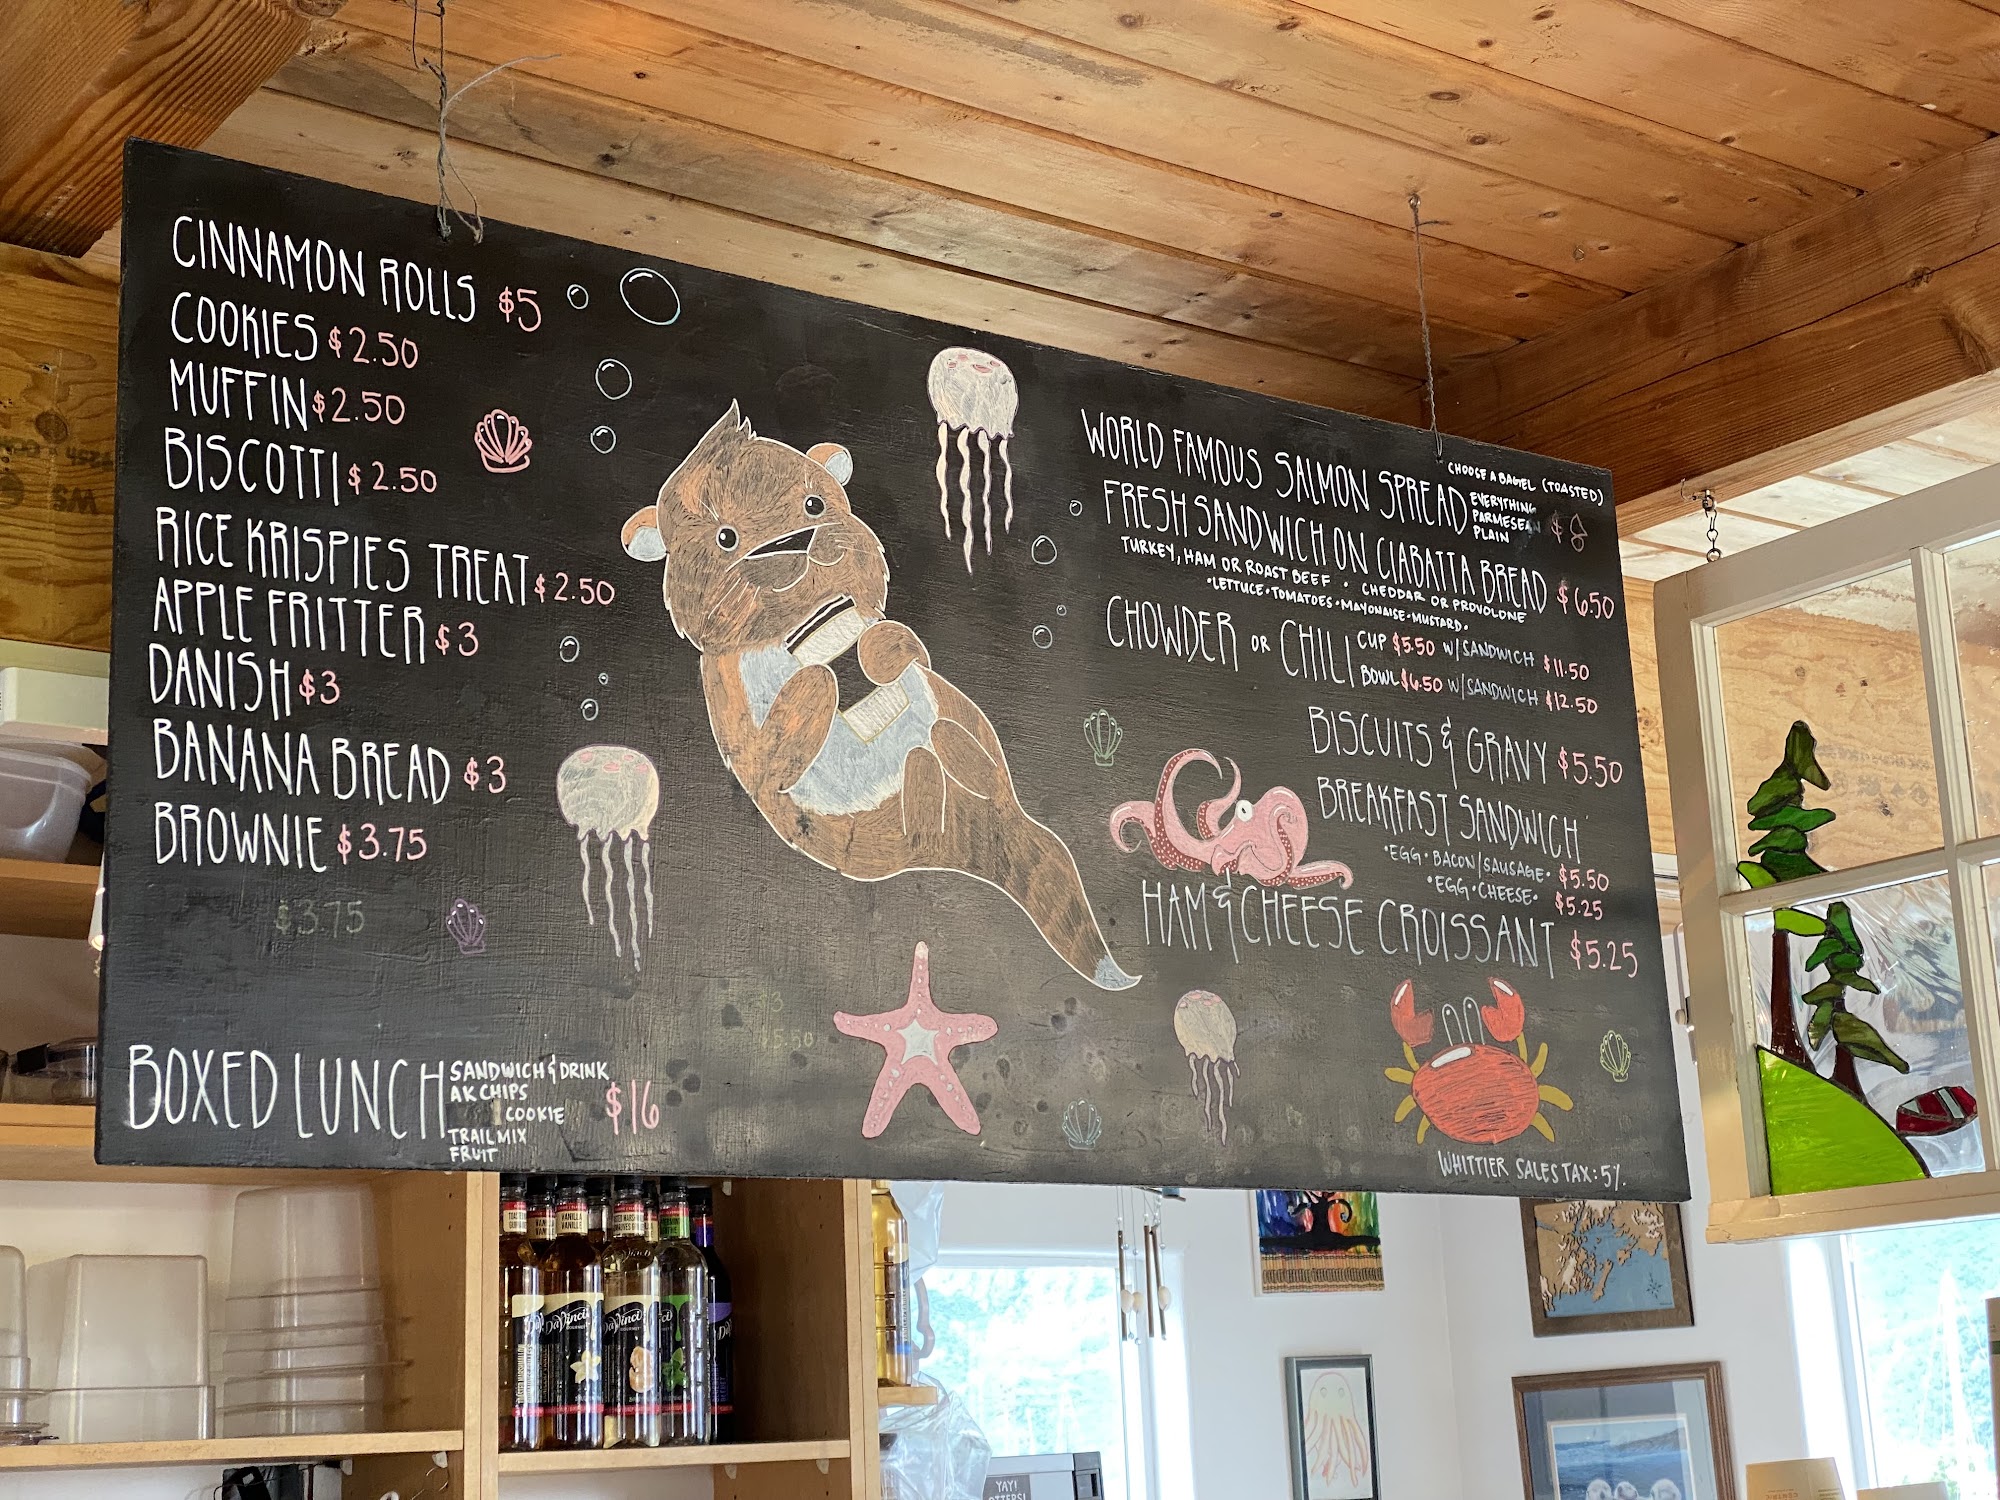 CINNAMON ROLLS $5
COOKIES $2.50
MUFFIN $2.50
BISCOTTI $2.50
RICE KRISPIES TREAT $2.50
APPLE FRITTER $3
DANISH $3
BANANA BREAD $3
BROWNIE $3.75
$3.75
BOXED LUNCH SANDWICH & DRINK $16
AK CHIPS
COOKIE
TRAIL MIX
FRUIT
WORLD FAMOUS SALMON SPREAD $8
CHOOSE A BAGEL (TOASTED)
EVERYTHING
PARMESEAN
PLAIN
FRESH SANDWICH ON CIABATTA BREAD $6.50
TURKEY, HAM OR ROAST BEEF • CHEDDAR OR PROVOLONE
•LETTUCE•TOMATOES•MAYONAISE•MUSTARD.
CHOWDER OR CHILI CUP $5.50 W/SANDWICH $11.50
BOWL $6.50 W/SANDWICH $12.50
BISCUITS & GRAVY $5.50
BREAKFAST SANDWICH
•EGG•BACON/SAUSAGE• $5.50
•EGG•CHEESE• $5.25
HAM & CHEESE CROISSANT $5.25
WHITTIER SALES TAX: 5%
VANILLA
VANILLE
DaVinci
GOURMET
DaVinci
YAY!
OTTERS!